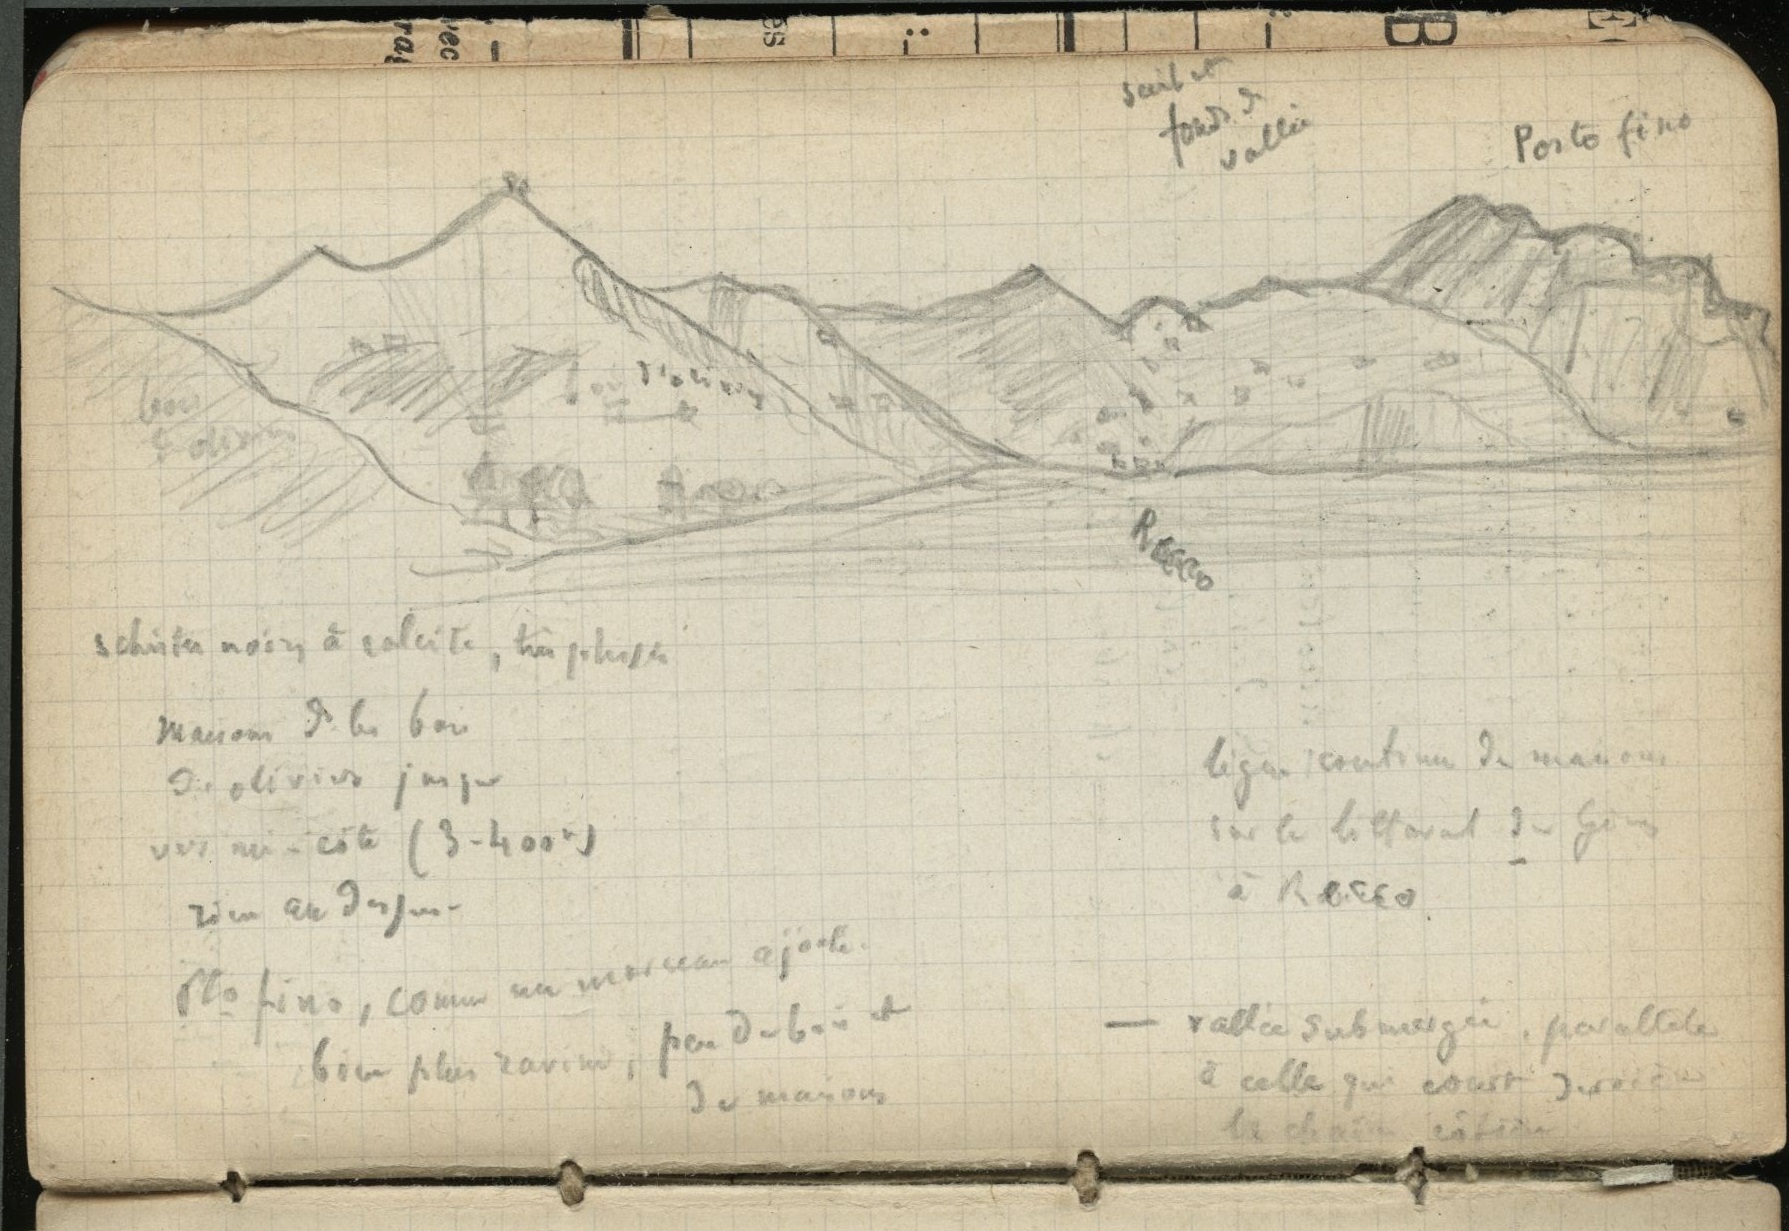 fond de
vallée
Porto fino
bois
d'oliviers
bois d'oliviers
Recco
schistes noirs à calcite, très plissés
Maisons ds les bois
d'oliviers jusque
vers mi-côte (3-400m)
rien au dessus -
Pto fino, comme un morceau ajouté.
bien plus raviné, peu de bois et
de maisons
ligne continue de maisons
sur le littoral de Gênes
à Recco
— vallée submergée, parallèle
à celle qui court derrière
la chaîne côtière